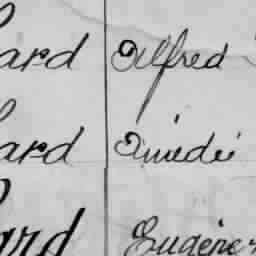 ard Alfred
ard Amédé
ard Eugène